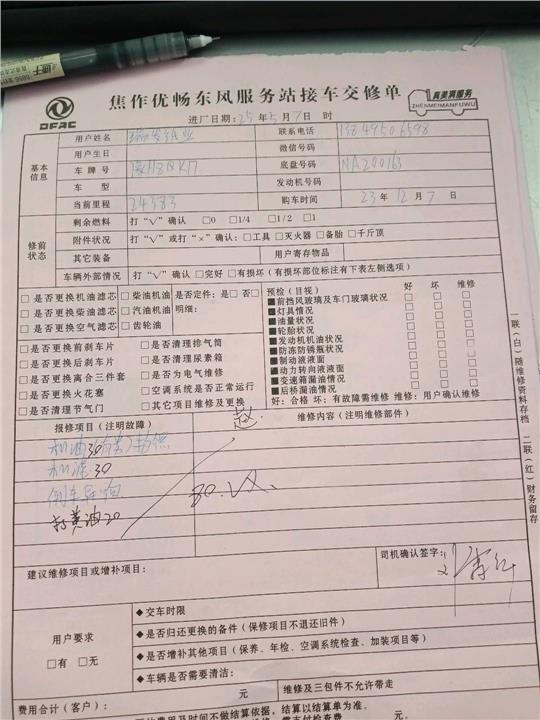 焦作优畅东风服务站接车交修单
真美满服务
ZHENMEIMANFUWU
DFAC
进厂日期：25年5月7日 时
基本信息
用户姓名
联系电话 13849506598
用户生日
微信号码
车牌号
底盘号码 NA200163
车 型
发动机号码
当前里程 24383
购车时间 23年12月7日
修前状态
剩余燃料 打“√”确认 □0 □1/4 □1/2 □1
附件状况 打“√”或打“×”确认：□工具 □灭火器 □备胎 □千斤顶
其它装备
用户寄存物品
车辆外部情况 打“√”确认 □完好 □有损坏（有损坏部位标注有下表左侧选项）
□是否更换机油滤芯 □柴油机油 是否定件：是□ 否□
□是否更换柴油滤芯 □汽油机油 明细：
□是否更换空气滤芯 □齿轮油
□是否更换前刹车片 □是否清理排气筒
□是否更换后刹车片 □是否清理尿素箱
□是否更换离合三件套 □是否为电气维修
□是否更换火花塞 □空调系统是否正常运行
□是否清理节气门 □其它项目维修及更换
预检（目视） 好 坏 维修
■前挡风玻璃及车门玻璃状况
■灯具情况
■油量状况
■轮胎状况
■发动机机油状况
■防冻防锈瓶状况
■制动液液面
■动力转向液液面
■变速箱漏油情况
■后桥漏油情况
好：合格 坏：有故障需维修 维修：用户确认维修
一联（白）随维修资料存档 二联（红）财务留存
报修项目（注明故障）
赵
维修内容（注明维修部件）
机滤30
倒车影响
打黄油20
建议维修项目或增补项目：
司机确认签字：
用户要求
□有 □无
◆交车时限
◆是否归还更换的备件（保修项目不退还旧件）
◆是否增补其他项目（保养、年检、空调系统检查、加装项目等）
◆车辆是否需要清洁：
费用合计（客户）： 元 维修及三包件不允许带走
费用及时间不做结算依据，结算以结算单为准。